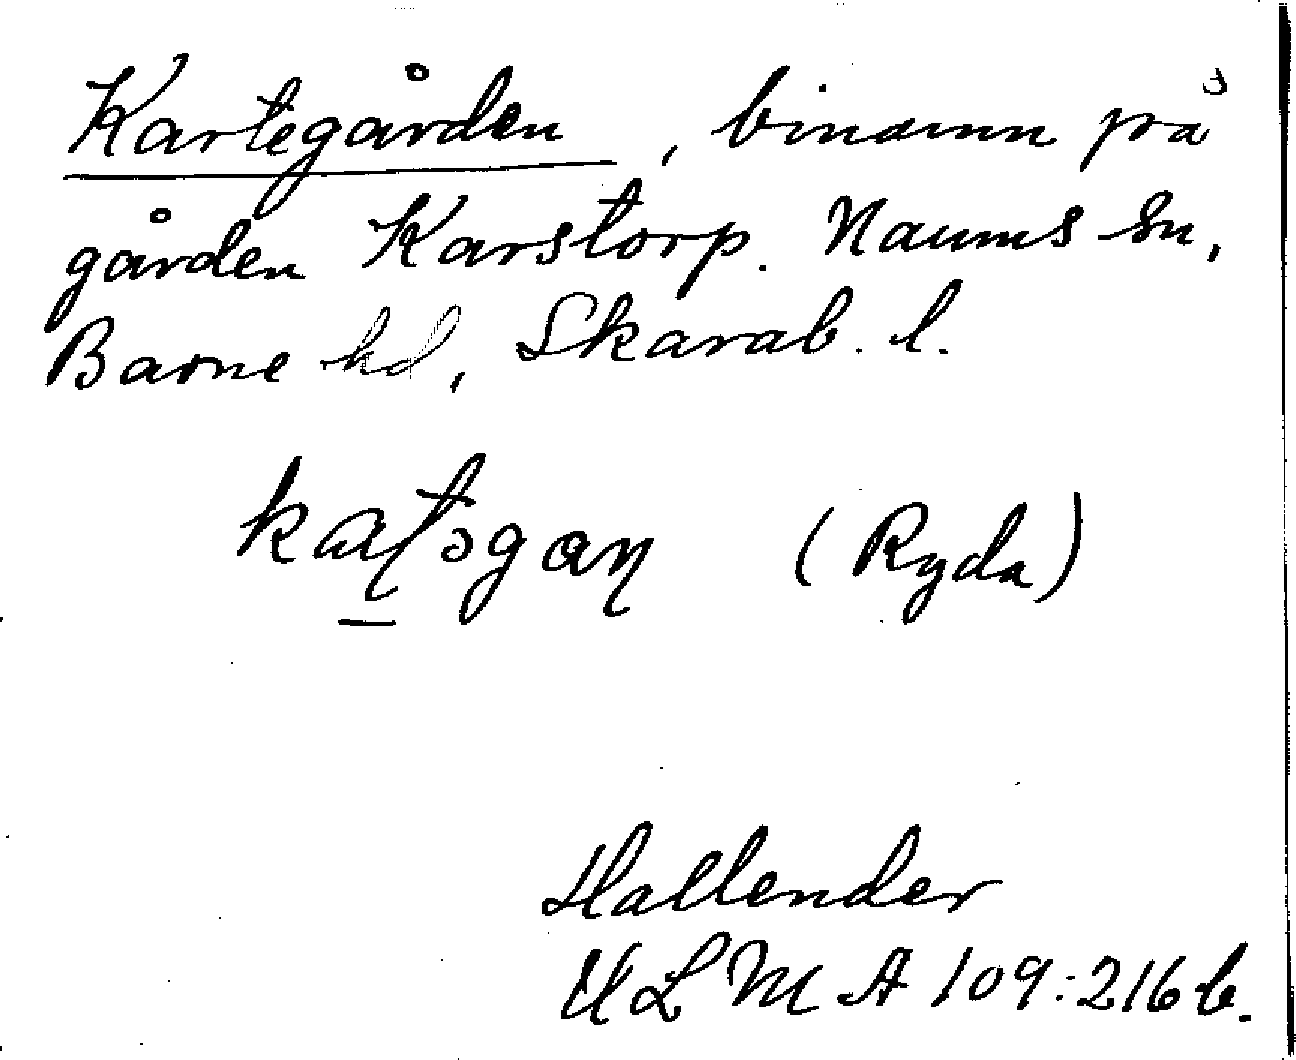 Kartegården, binamn på
gården Karstorp. Naums sn,
Barne hd, Skarab. l.
katəgaɳ (Ryda)
Hallender
ULMA 109:216 b.